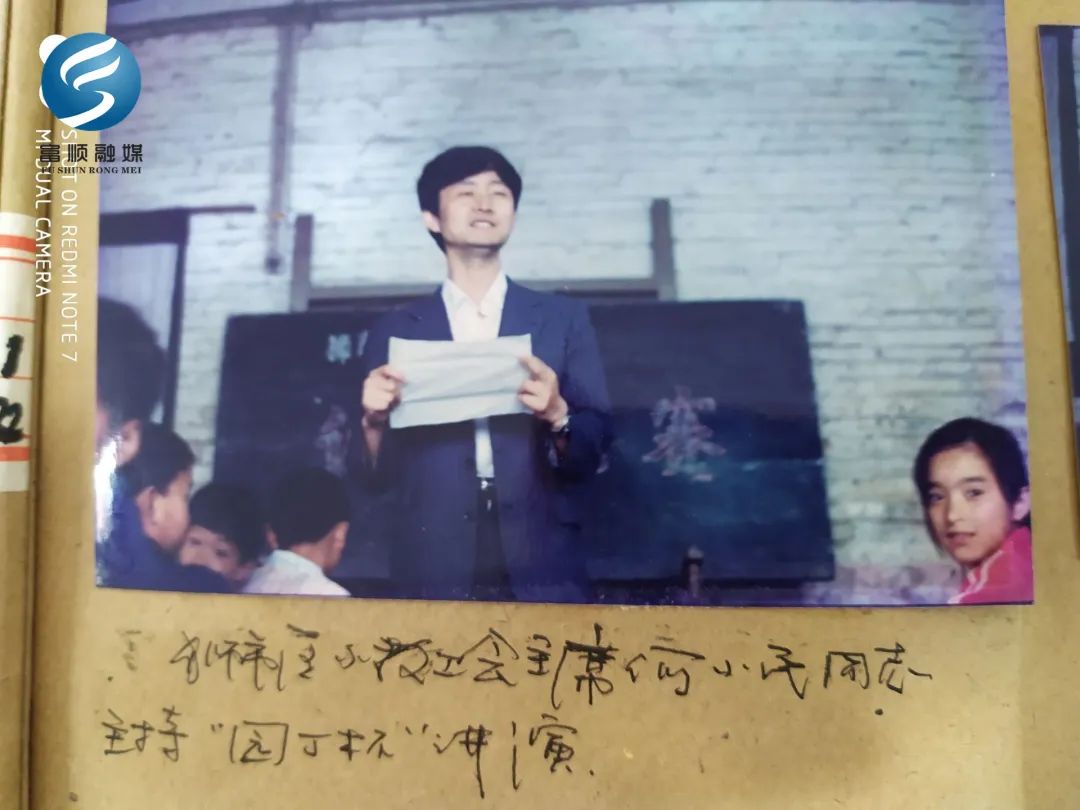 富顺融媒
FU SHUN RONG MEI
SHOT ON REDMI NOTE 7
MI DUAL CAMERA
赛
狮市小教工会主席何小民同志
主持“园丁杯”讲演.